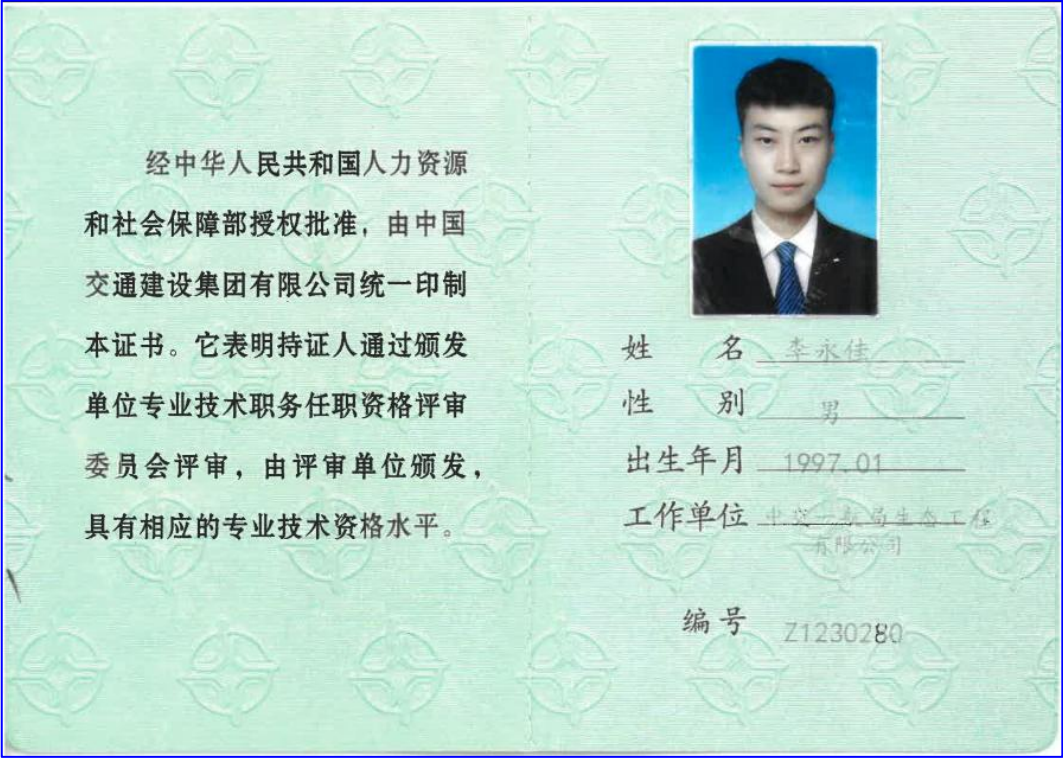 经中华人民共和国人力资源
和社会保障部授权批准，由中国
交通建设集团有限公司统一印制
本证书。它表明持证人通过颁发
单位专业技术职务任职资格评审
委员会评审，由评审单位颁发，
具有相应的专业技术资格水平。
姓 名 李永佳
性 别 男
出生年月 1997.01
工作单位 中交一航局生态工程
有限公司
编号 Z1230280